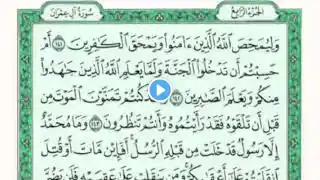 الجزء الرابع
سورة آل عمران
وَلِيُمَحِّصَ ٱللَّهُ ٱلَّذِينَ ءَامَنُوا۟ وَيَمْحَقَ ٱلْكَٰفِرِينَ ١٤١ أَمْ
حَسِبْتُمْ أَن تَدْخُلُوا۟ ٱلْجَنَّةَ وَلَمَّا يَعْلَمِ ٱللَّهُ ٱلَّذِينَ جَٰهَدُوا۟
مِنكُمْ وَيَعْلَمَ ٱلصَّٰبِرِينَ ١٤٢ كُنتُمْ تَمَنَّوْنَ ٱلْمَوْتَ مِن
قَبْلِ أَن تَلْقَوْهُ فَقَدْ رَأَيْتُمُوهُ وَأَنتُمْ تَنظُرُونَ ١٤٣ وَمَا مُحَمَّدٌ
إِلَّا رَسُولٌ قَدْ خَلَتْ مِن قَبْلِهِ ٱلرُّسُلُ أَفَإِي۟ن مَّاتَ أَوْ قُتِلَ
ٱنقَلَبْتُمْ عَلَىٰٓ أَعْقَٰبِكُمْ وَمَن يَنقَلِبْ عَلَىٰ عَقِبَيْهِ فَلَن يَضُرَّ